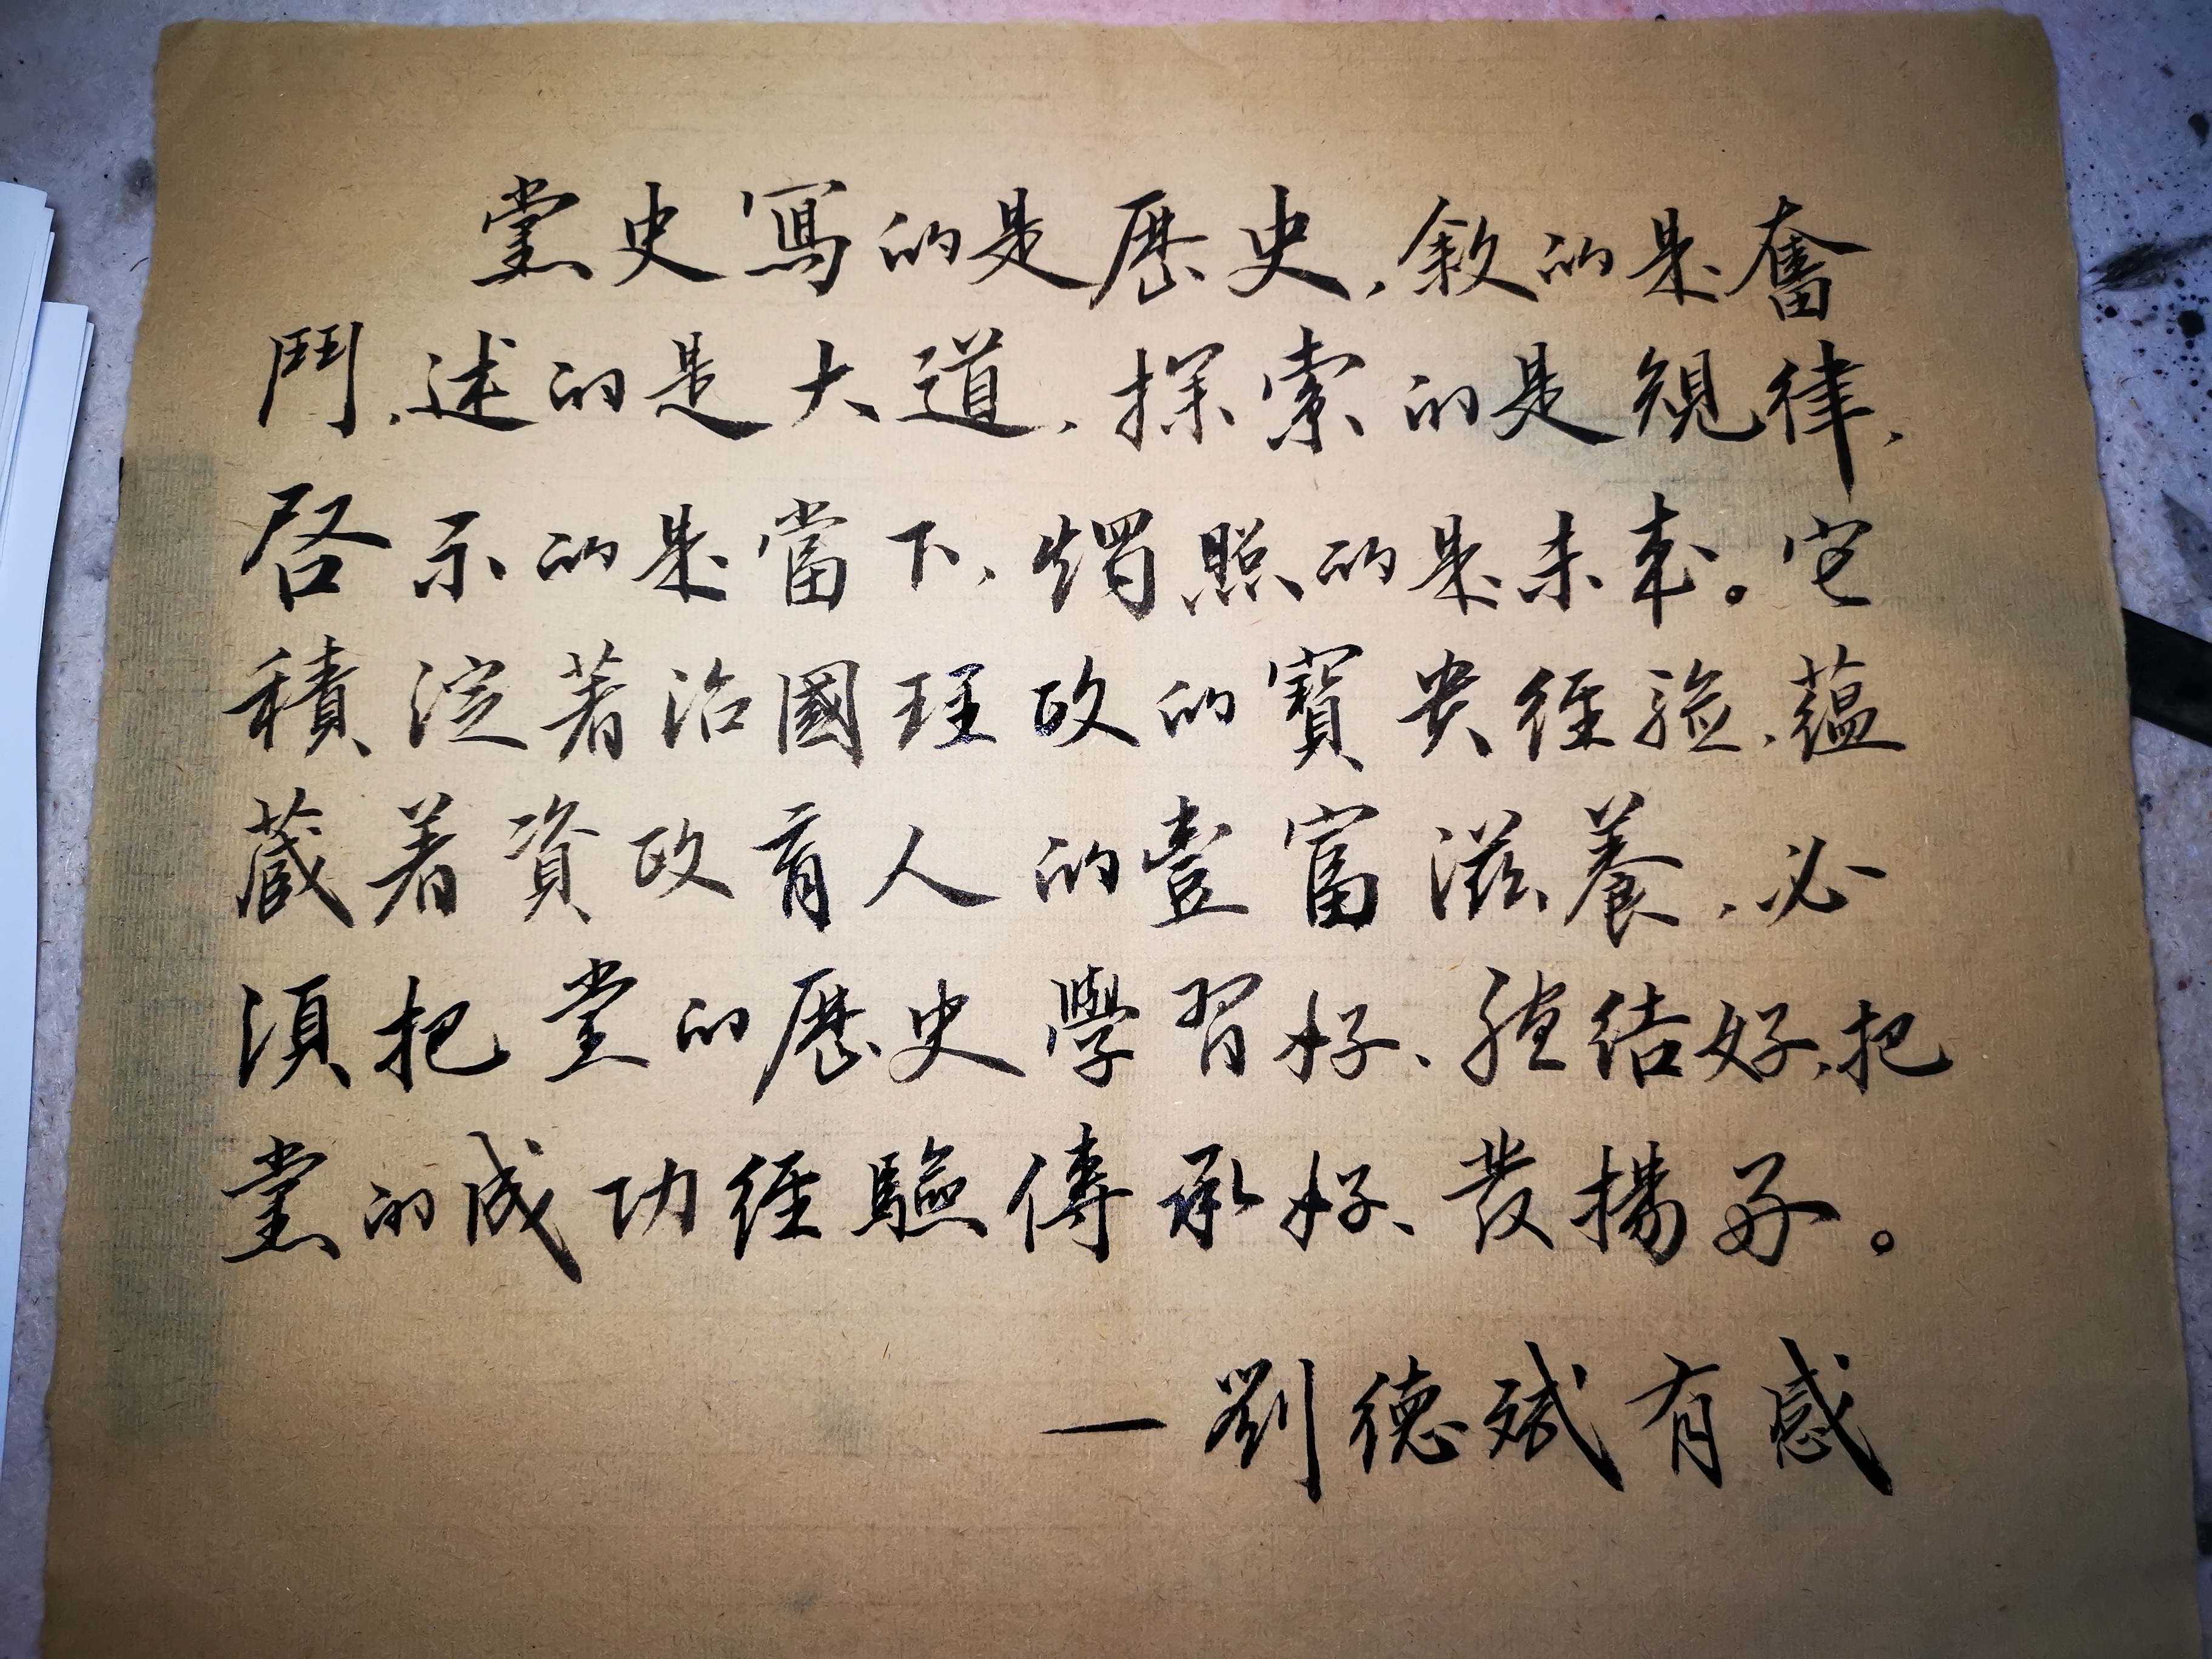 黨史寫的是歷史，敘的是奮
鬥，述的是大道，探索的是規律，
啓示的是當下，燭照的是未來。它
積淀著治國理政的寶贵經驗，蘊
藏著資政育人的豐富滋養，必
須把黨的歷史學習好、總結好，把
黨的成功經驗傳承好、發揚好。
—劉德斌有感